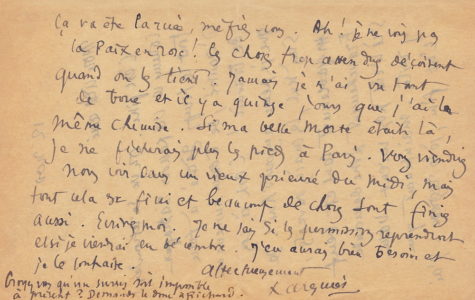 Ça va être la ruée, méfiez-vous. Ah! je ne vois pas
la Paix en rose! Les choses trop attendues déçoivent
quand on les tient. Jamais je n'ai vu tant
de boue et il y a quinze jours que j'ai la
même chemise. Si ma belle Morte était là,
je ne ficherais plus les pieds à Paris. Vous viendriez
nous voir dans un vieux prieuré du Midi, mais
tout cela est fini et beaucoup de choses sont finies
aussi. Ecrivez moi. Je ne sais si les permissions reprendront
et si je viendrai en décembre. J'en aurais bien besoin et
je le souhaite.
Affectueusement
Croyez vous qu'un sursis soit impossible
à présent? Demandez le donc à Richard.